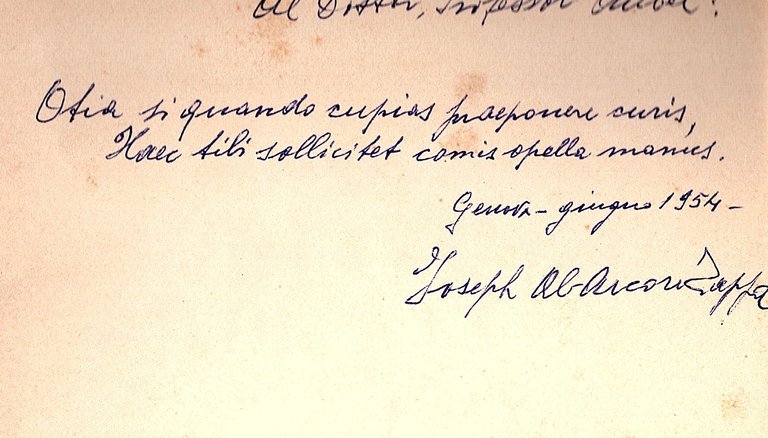 Al Dottor, Professor
Otia si quando cupias praeponere curis,
Haec tibi sollicitet comis opella manus.
Genova - giugno 1954 -
Joseph Ab Arcori Zappa